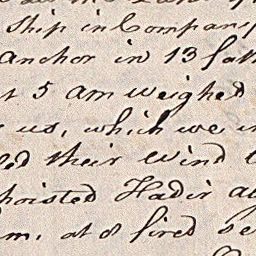 ship in Company
anchor in 13 fat
t 5 am weighed
us, which we
ed their Wind
hoisted Hadir a
m. at 8 fired se